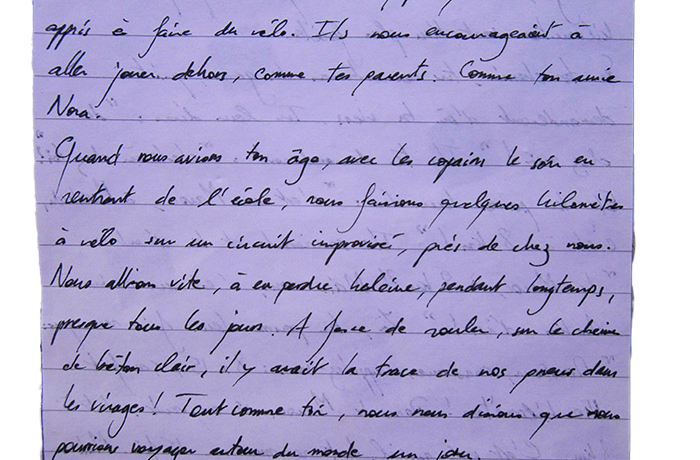 appris à faire du vélo. Ils nous encourageaient à
aller jouer dehors, comme tes parents. Comme ton amie
Nora.
Quand nous avions ton âge, avec les copains le soir en
rentrant de l'école, nous faisions quelques kilomètres
à vélo sur un circuit improvisé, près de chez nous.
Nous allions vite, à en perdre haleine, pendant longtemps,
presque tous les jours. A force de rouler, sur le chemin
de béton clair, il y avait la trace de nos pneus dans
les virages ! Tout comme toi, nous nous disions que nous
pourrions voyager autour du monde un jour.